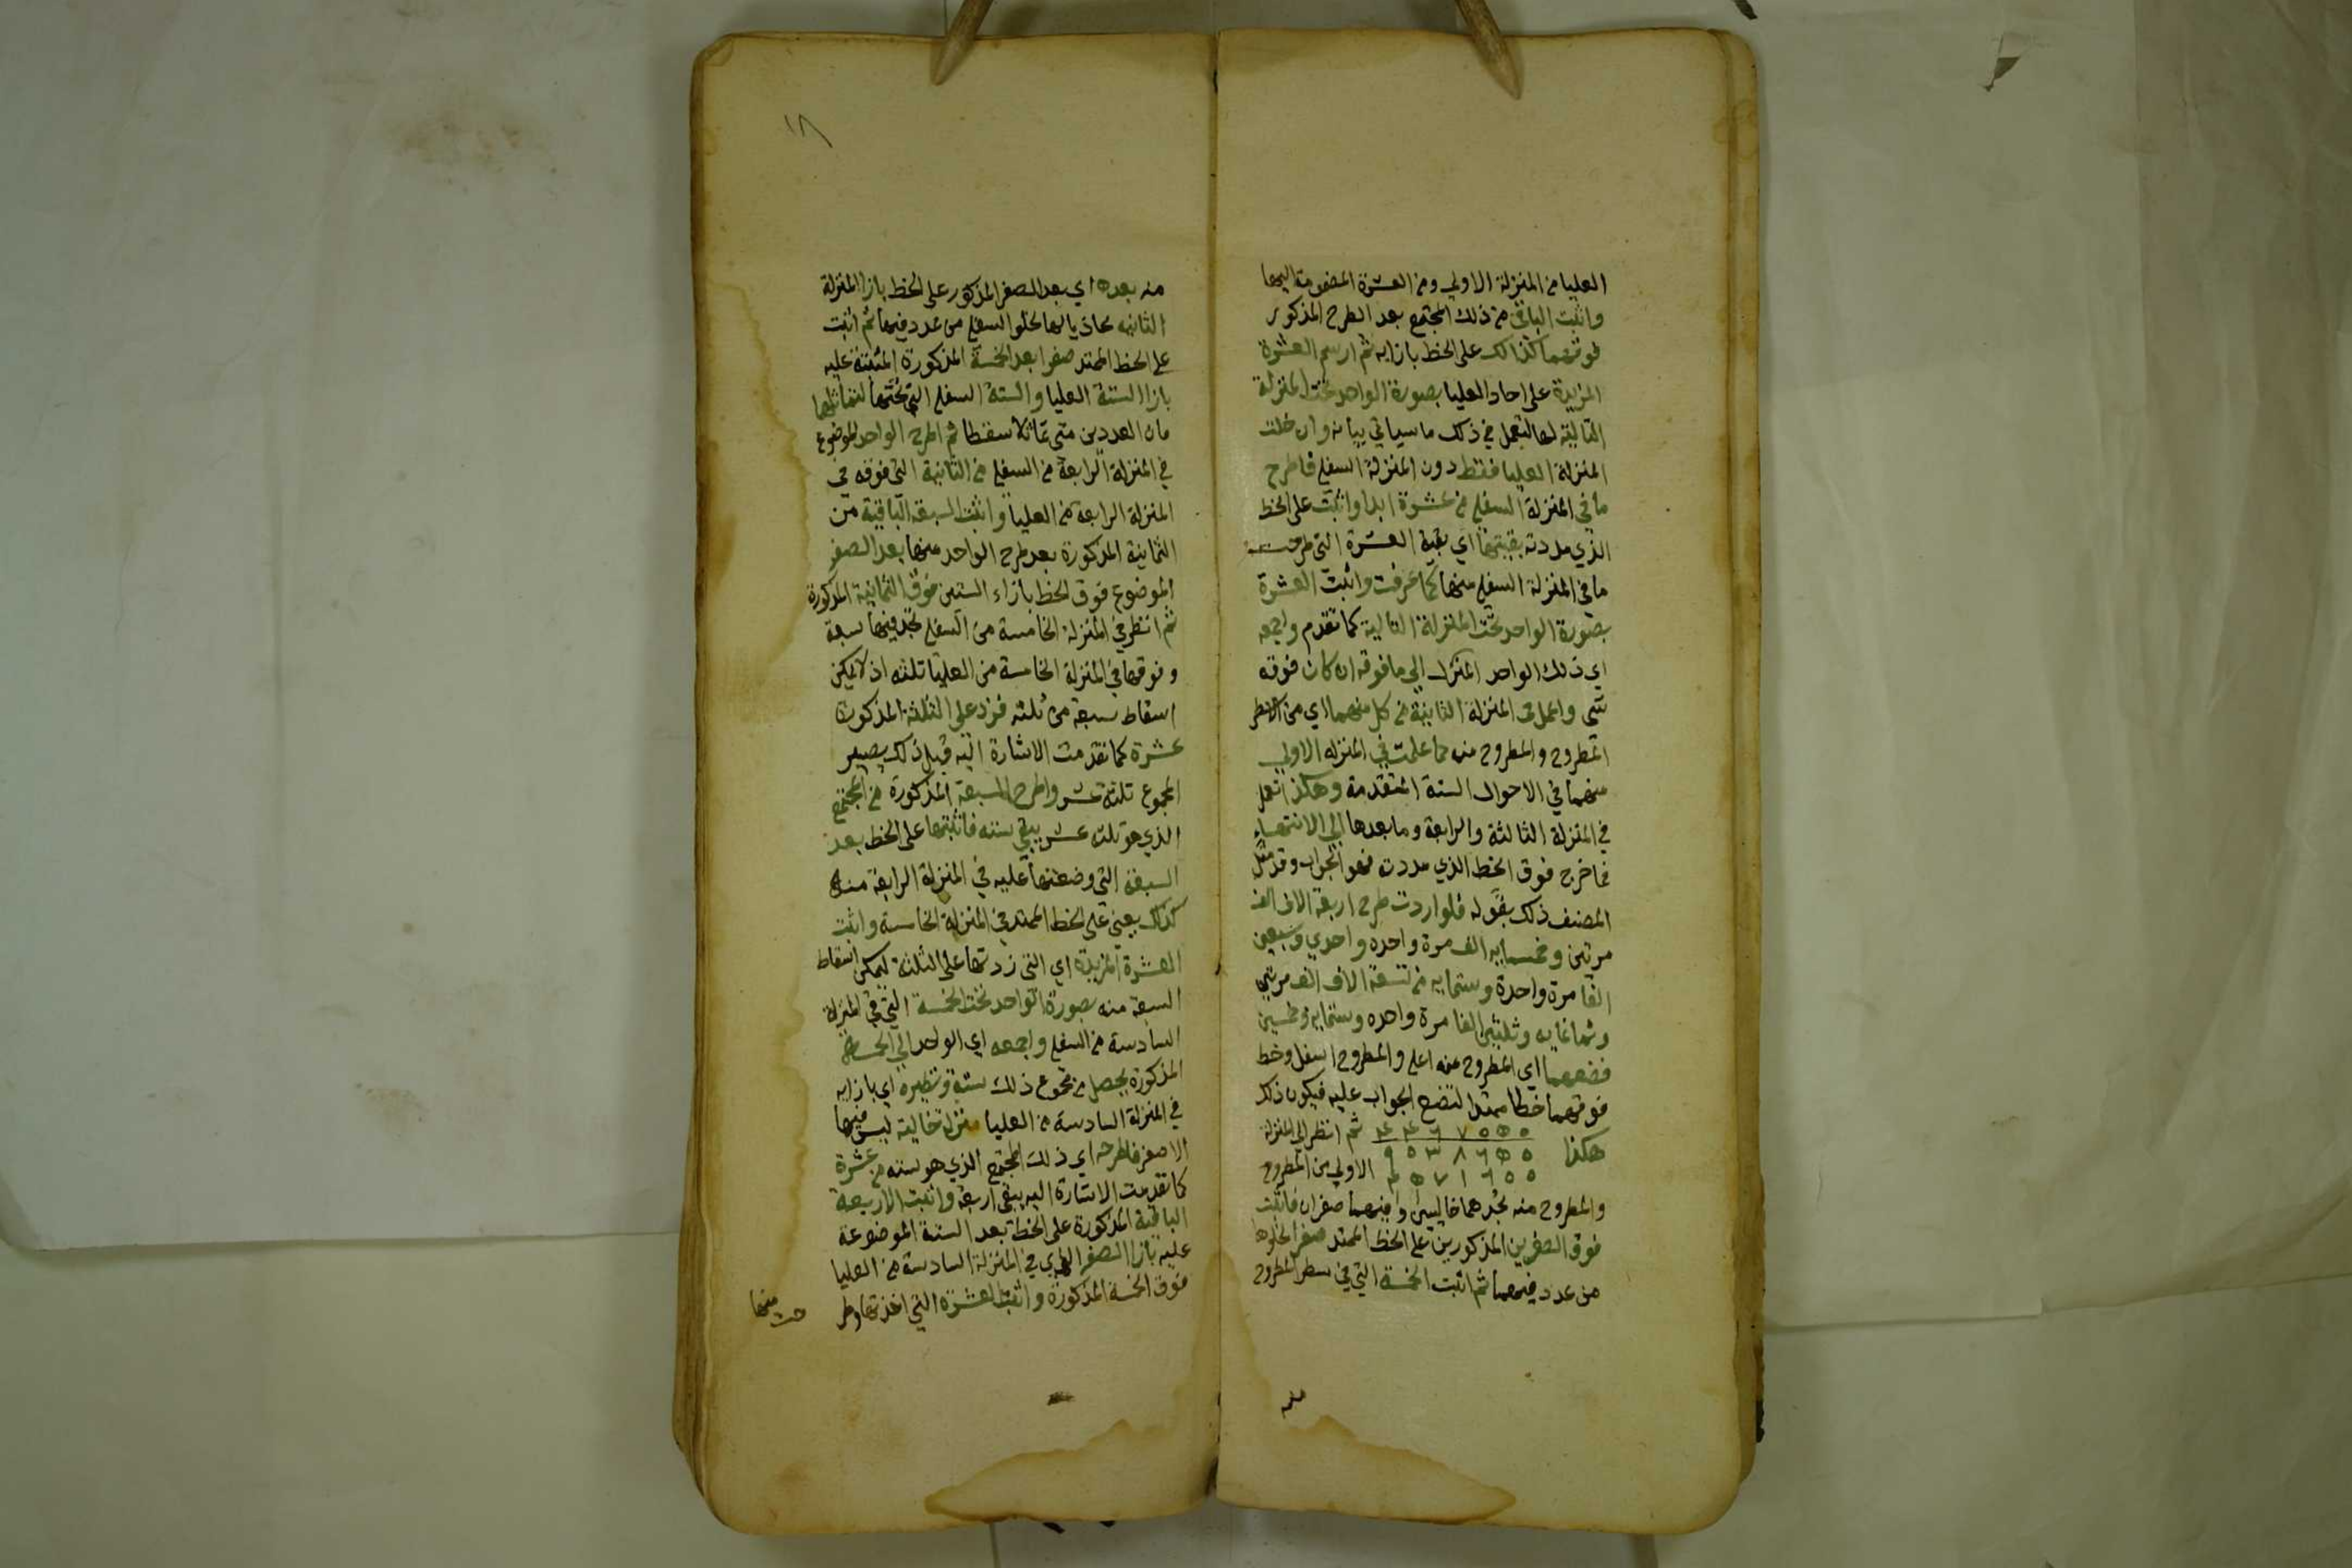 العليا من المنزلة الاولى ومن العشرة المضمومة اليها
واثبت الباقي من ذلك المجتمع بعد الطرح المذكور
فوقهما كذالك على الخط بازايه ثم ارسم العشرة
المزيدة على احاد العليا بصورة الواحد تحت المنزلة
التالية لها لتعمل في ذلك ما سياتي بيانه وان خلت
المنزلة العليا فقط دون المنزلة السفلى فاطرح
ما في المنزلة السفلى من عشرة ابدا واثبت على الخط
الذي مددته بقيتها اي بقية العشرة التي طرحت
ما في المنزلة السفلى منها كما عرفت واثبت العشرة
بصورة الواحد تحت المنزلة التالية كما تقدم واجمعه
اي ذلك الواحد المنزل الى ما فوقه ان كان فوقه
شي واعمل في المنزلة الثانية من كل منهما اي من السطر
المطروح والمطروح منه ما علمت في المنزله الاولى
منهما في الاحوال الستة المتقدمة وهكذا تعمل
في المنزلة الثالثة والرابعة وما بعدها الى الانتهاء
فما خرج فوق الخط الذي مددت فهو الجواب وقد مثل
المصنف ذلك بقوله فلو اردت طرح اربعة الاف الف
مرتين وخمسمايه الف مرة واحده واحدي وسبعين
الفا مرة واحدة وستمايه من تسعة الاف الف مرتين
وثمانمايه وثلثين الفا مرة واحده وستمايه وخمسين
فضعهما اي المطروح منه اعلى والمطروح اسفل وخط
فوقهما خطا ممتدا لتضع الجواب عليه فيكون ذلك
هكذا ثم انظر الى المنزلة
الاولى من المطروح
والمطروح منه تجدهما خاليين وفيهما صفران فاثبت
فوق الصفرين المذكورين على الخط الممتد صفر الخلوهما
من عدد فيهما ثم اثبت الخمسة التي في سطر المطروح
منه
١٨
منه بعده اي بعد الصفر المذكور على الخط بازا المنزلة
الثانيه محاذيا لها لخلو السفلى من عدد فيها ثم اثبت
على الخط الممتد صفرا بعد الخمسة المذكورة المثبتة عليه
بازا الستة العليا والستة السفلى التي تحتها لتماثلهما
فان العددين متى تماثلا سقطا ثم اطرح الواحد الموضوع
في المنزلة الرابعة من السفلى من الثمانية التي فوقه في
المنزلة الرابعة من العليا واثبت السبعة الباقية من
الثمانية المذكورة بعد طرح الواحد منها بعد الصفر
الموضوع فوق الخط بازاء الستين فوق الثمانية المذكورة
ثم انظر في المنزلة الخامسة من السفلى تجد فيها سبعة
وفوقها في المنزلة الخامسة من العليا ثلثه اذ لا يمكن
اسقاط سبعة من ثلثه فزد على الثلثة المذكورة
عشرة كما تقدمت الاشارة اليه قبل ذلك يصير
المجموع ثلثة عشر واطرح السبعة المذكورة من المجتمع
الذي هو ثلثه عشر يبقي سته فاثبتها على الخط بعد
السبعة التي وضعتها عليه في المنزلة الرابعة منه
كذلك يعني على الخط الممتد في المنزلة الخامسة واثبت
العشرة المزيدة اي التي زدتها على الثلثة ليمكن اسقاط
السبعة منه بصورة الواحد تحت الخمسة التي في المنزلة
السادسة من السفلى واجمعه اي الواحد الى الخمسة
المذكورة يحصل من مجموع ذلك ستة ونظيره اي بازايه
في المنزلة السادسة من العليا منزلة خالية ليس فيها
الا صفر فاطرحه اي ذلك المجتمع الذي هو سته من عشرة
كما تقدمت الاشارة اليه يبقى اربعة واثبت الاربعة
الباقية المذكورة على الخط بعد الستة الموضوعة
عليه بازا الصفر الذي في المنزلة السادسة من العليا
فوق الخمسة المذكورة واثبت العشرة التي اخذتها وطر
حت منها